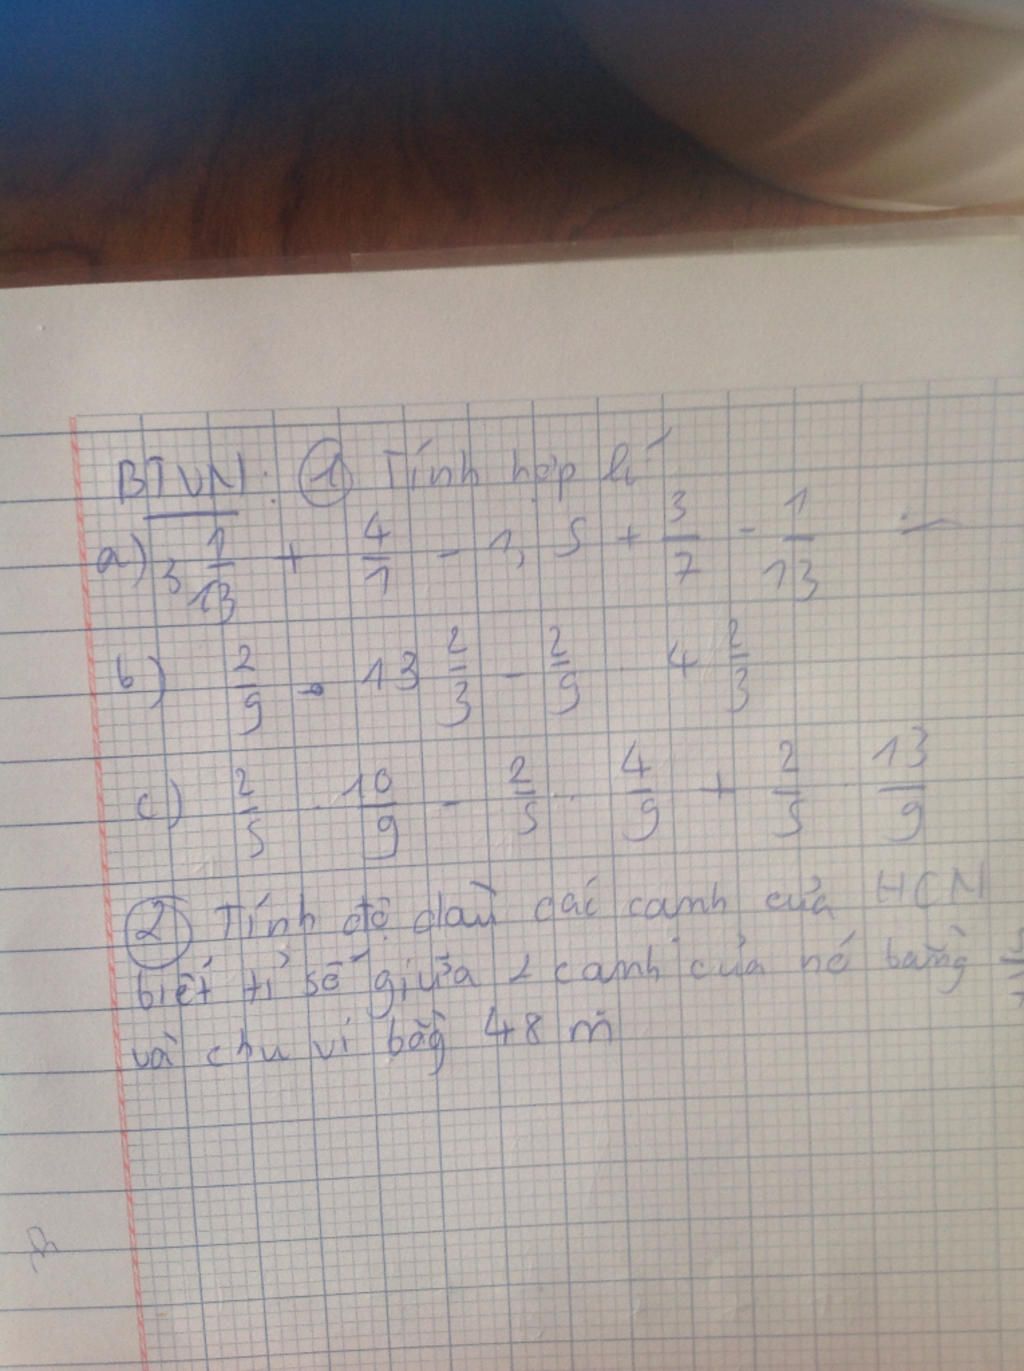 BTVN: ① Tính hợp lí
a) 3 1/13 + 4/1 - 1,5 + 3/7 - 1/13 -
b) 2/9 . 13 2/3 - 2/9 4 2/3
c) 2/5 . 10/9 - 2/5 . 4/9 + 2/5 13/9
② Tính độ dài các cạnh của HCN
biết tỉ số giữa 2 cạnh của nó bằng
và chu vi bằg 48 m